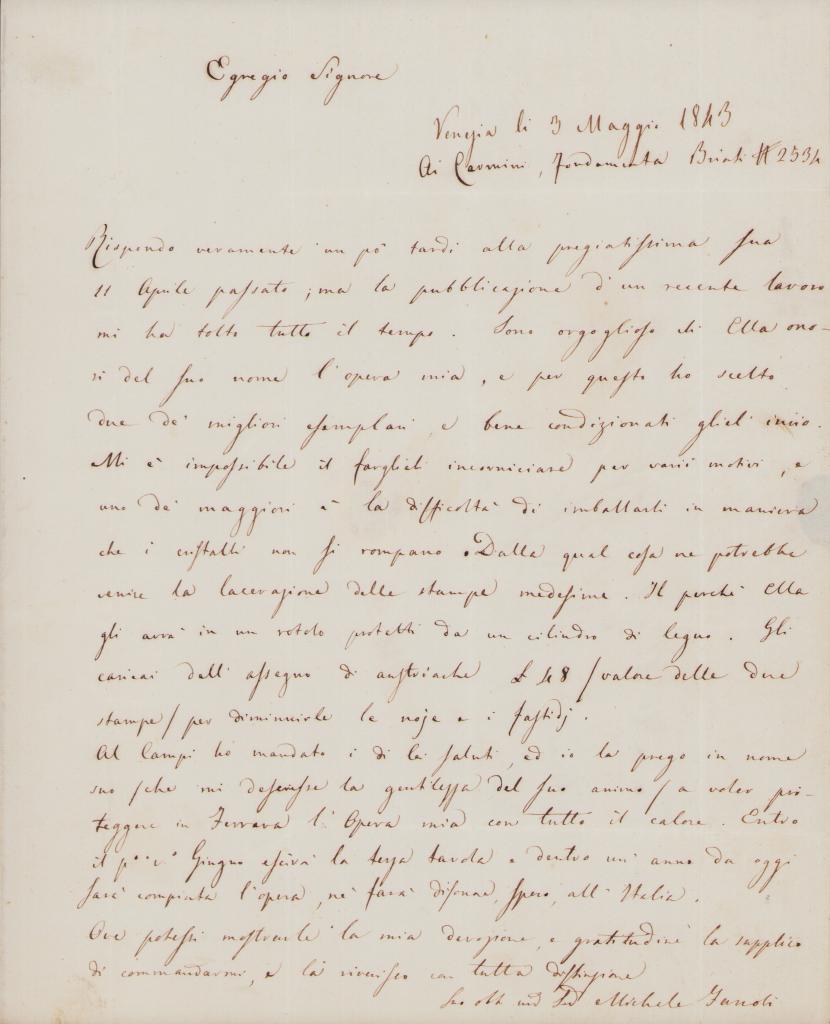 Egregio Signore
Venezia li 3 Maggio 1843
Ai Carmini, Fondamenta Briati # 2534
Rispondo veramente un pò tardi alla pregiatissima sua
11 Aprile passato; ma la pubblicazione d'un recente lavoro
mi ha tolto tutto il tempo. Sono orgoglioso di Ella ono-
ri del suo nome l'opera mia, e per questo ho scelto
due de' migliori esemplari e bene condizionati gliel' invio.
Mi è impossibile il farglieli incorniciare per varii motivi, e
uno de' maggiori è la difficoltà di imballarli in maniera
che i cristalli non si rompano. Dalla qual cosa ne potrebbe
venire la lacerazione delle stampe medesime. Il perchè Ella
gli avrà in un rotolo protetti da un cilindro di legno. Gli
caricai dell' assegno di austriache £ 48 / valore delle due
stampe / per diminuirle le noje e i fastidj.
Al Lampi ho mandato i di lei saluti, ed io la prego in nome
suo / che mi descrisse la gentilezza del suo animo / a voler pro-
teggere in Ferrara l'Opera mia con tutto il calore. Entro
il p.° v.° Giugno escirà la terza tavola e dentro un' anno da oggi
sarà compiuta l'opera, nè farà disonore, spero, all' Italia.
Ove potessi mostrarle la mia devozione, e gratitudine la supplico
di commandarmi, e la riverisco con tutta distinzione
Suo obb Michele